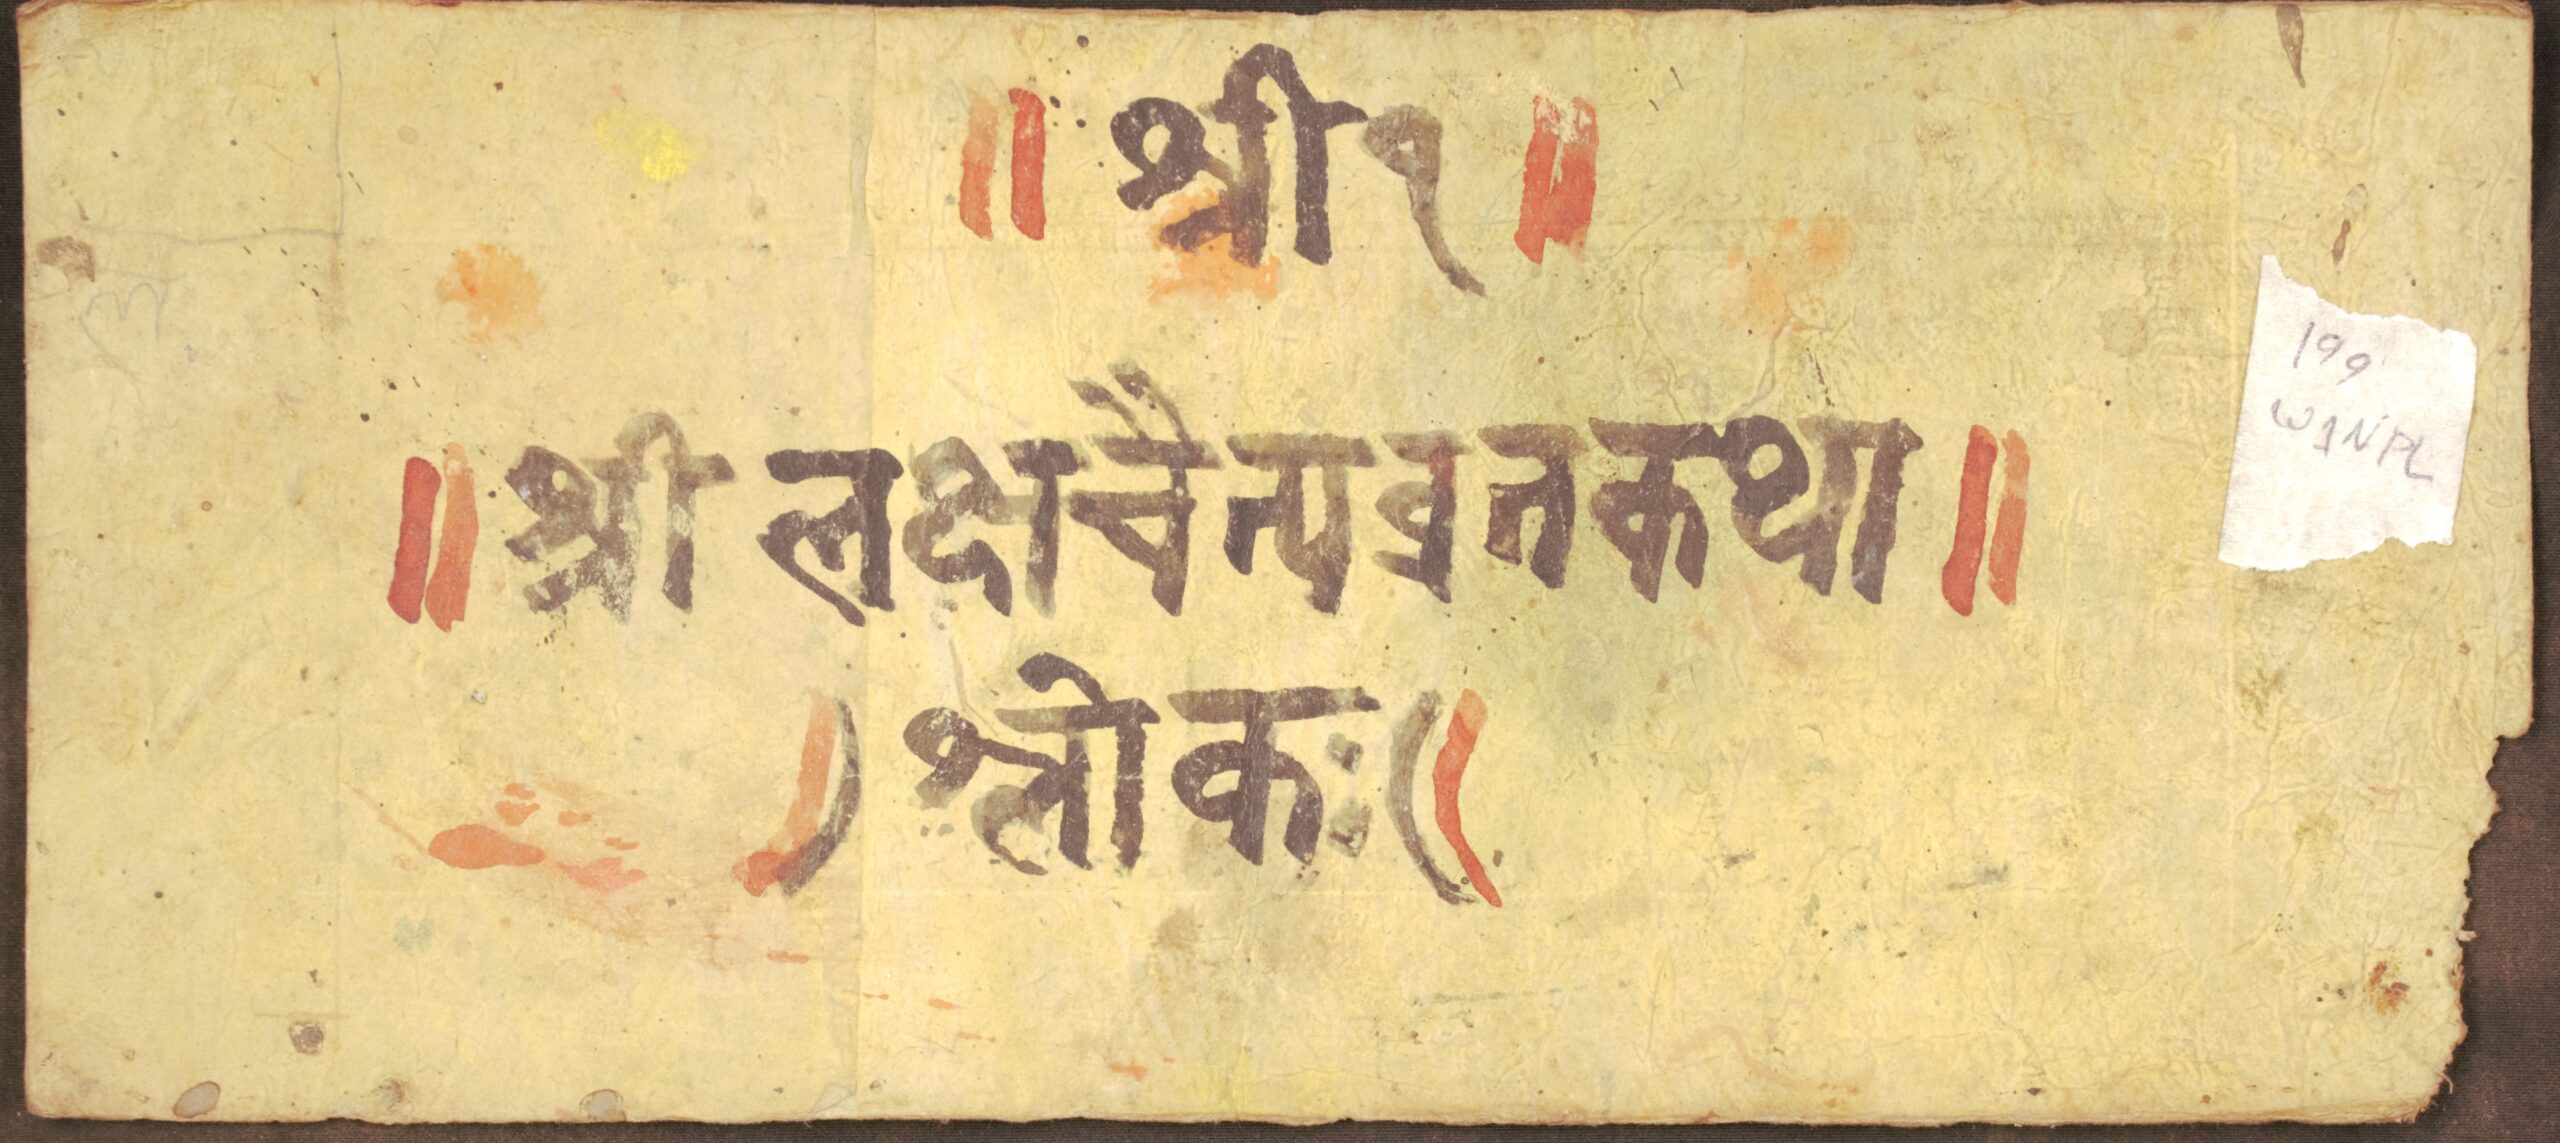 ॥ श्री१ ॥
॥ श्री लक्षचैत्यव्रतकथा ॥
) श्लोकः (
199
W1NPL